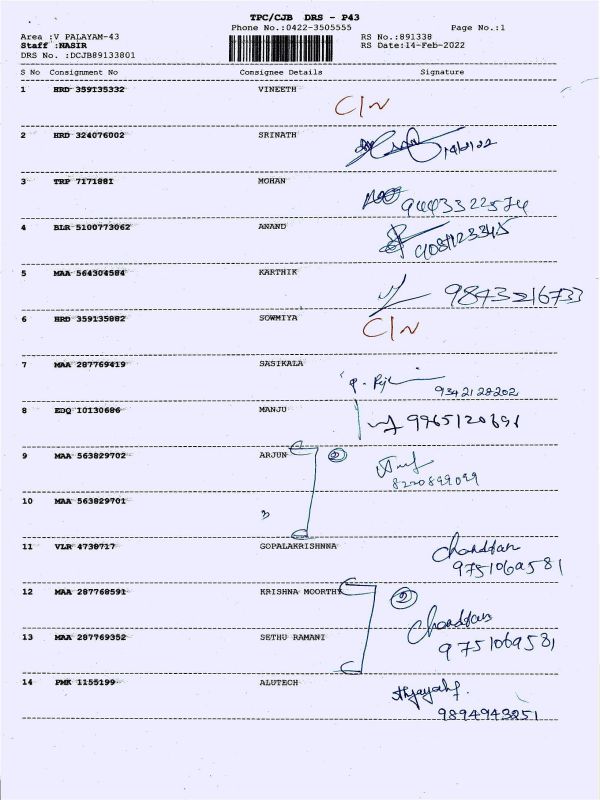 TPC/CJB DRS - P43
Phone No.:0422-3505555 Page No.:1
Area :V PALAYAM-43 RS No.:891338
Staff :NASIR RS Date:14-Feb-2022
DRS No. :DCJB89133801
S No Consignment No Consignee Details Signature
1 HRD 359135332 VINEETH C/N
2 HRD 324076002 SRINATH
3 TRP 7171881 MOHAN 9443322574
4 BLR 5100773062 ANAND
5 MAA 564304584 KARTHIK 9873216733
6 HRD 359135082 SOWMIYA C/N
7 MAA 287769419 SASIKALA 9342128202
8 EDQ 10130686 MANJU 9965120691
9 MAA 563829702 ARJUN 2 8220899099
10 MAA 563829701
11 VLR 4738717 GOPALAKRISHNNA Chanddan 9751069581
12 MAA 287768591 KRISHNA MOORTHY 2 Chanddan
13 MAA 287769352 SETHU RAMANI 9751069581
14 PMK 1155199 ALUTECH 9894943251